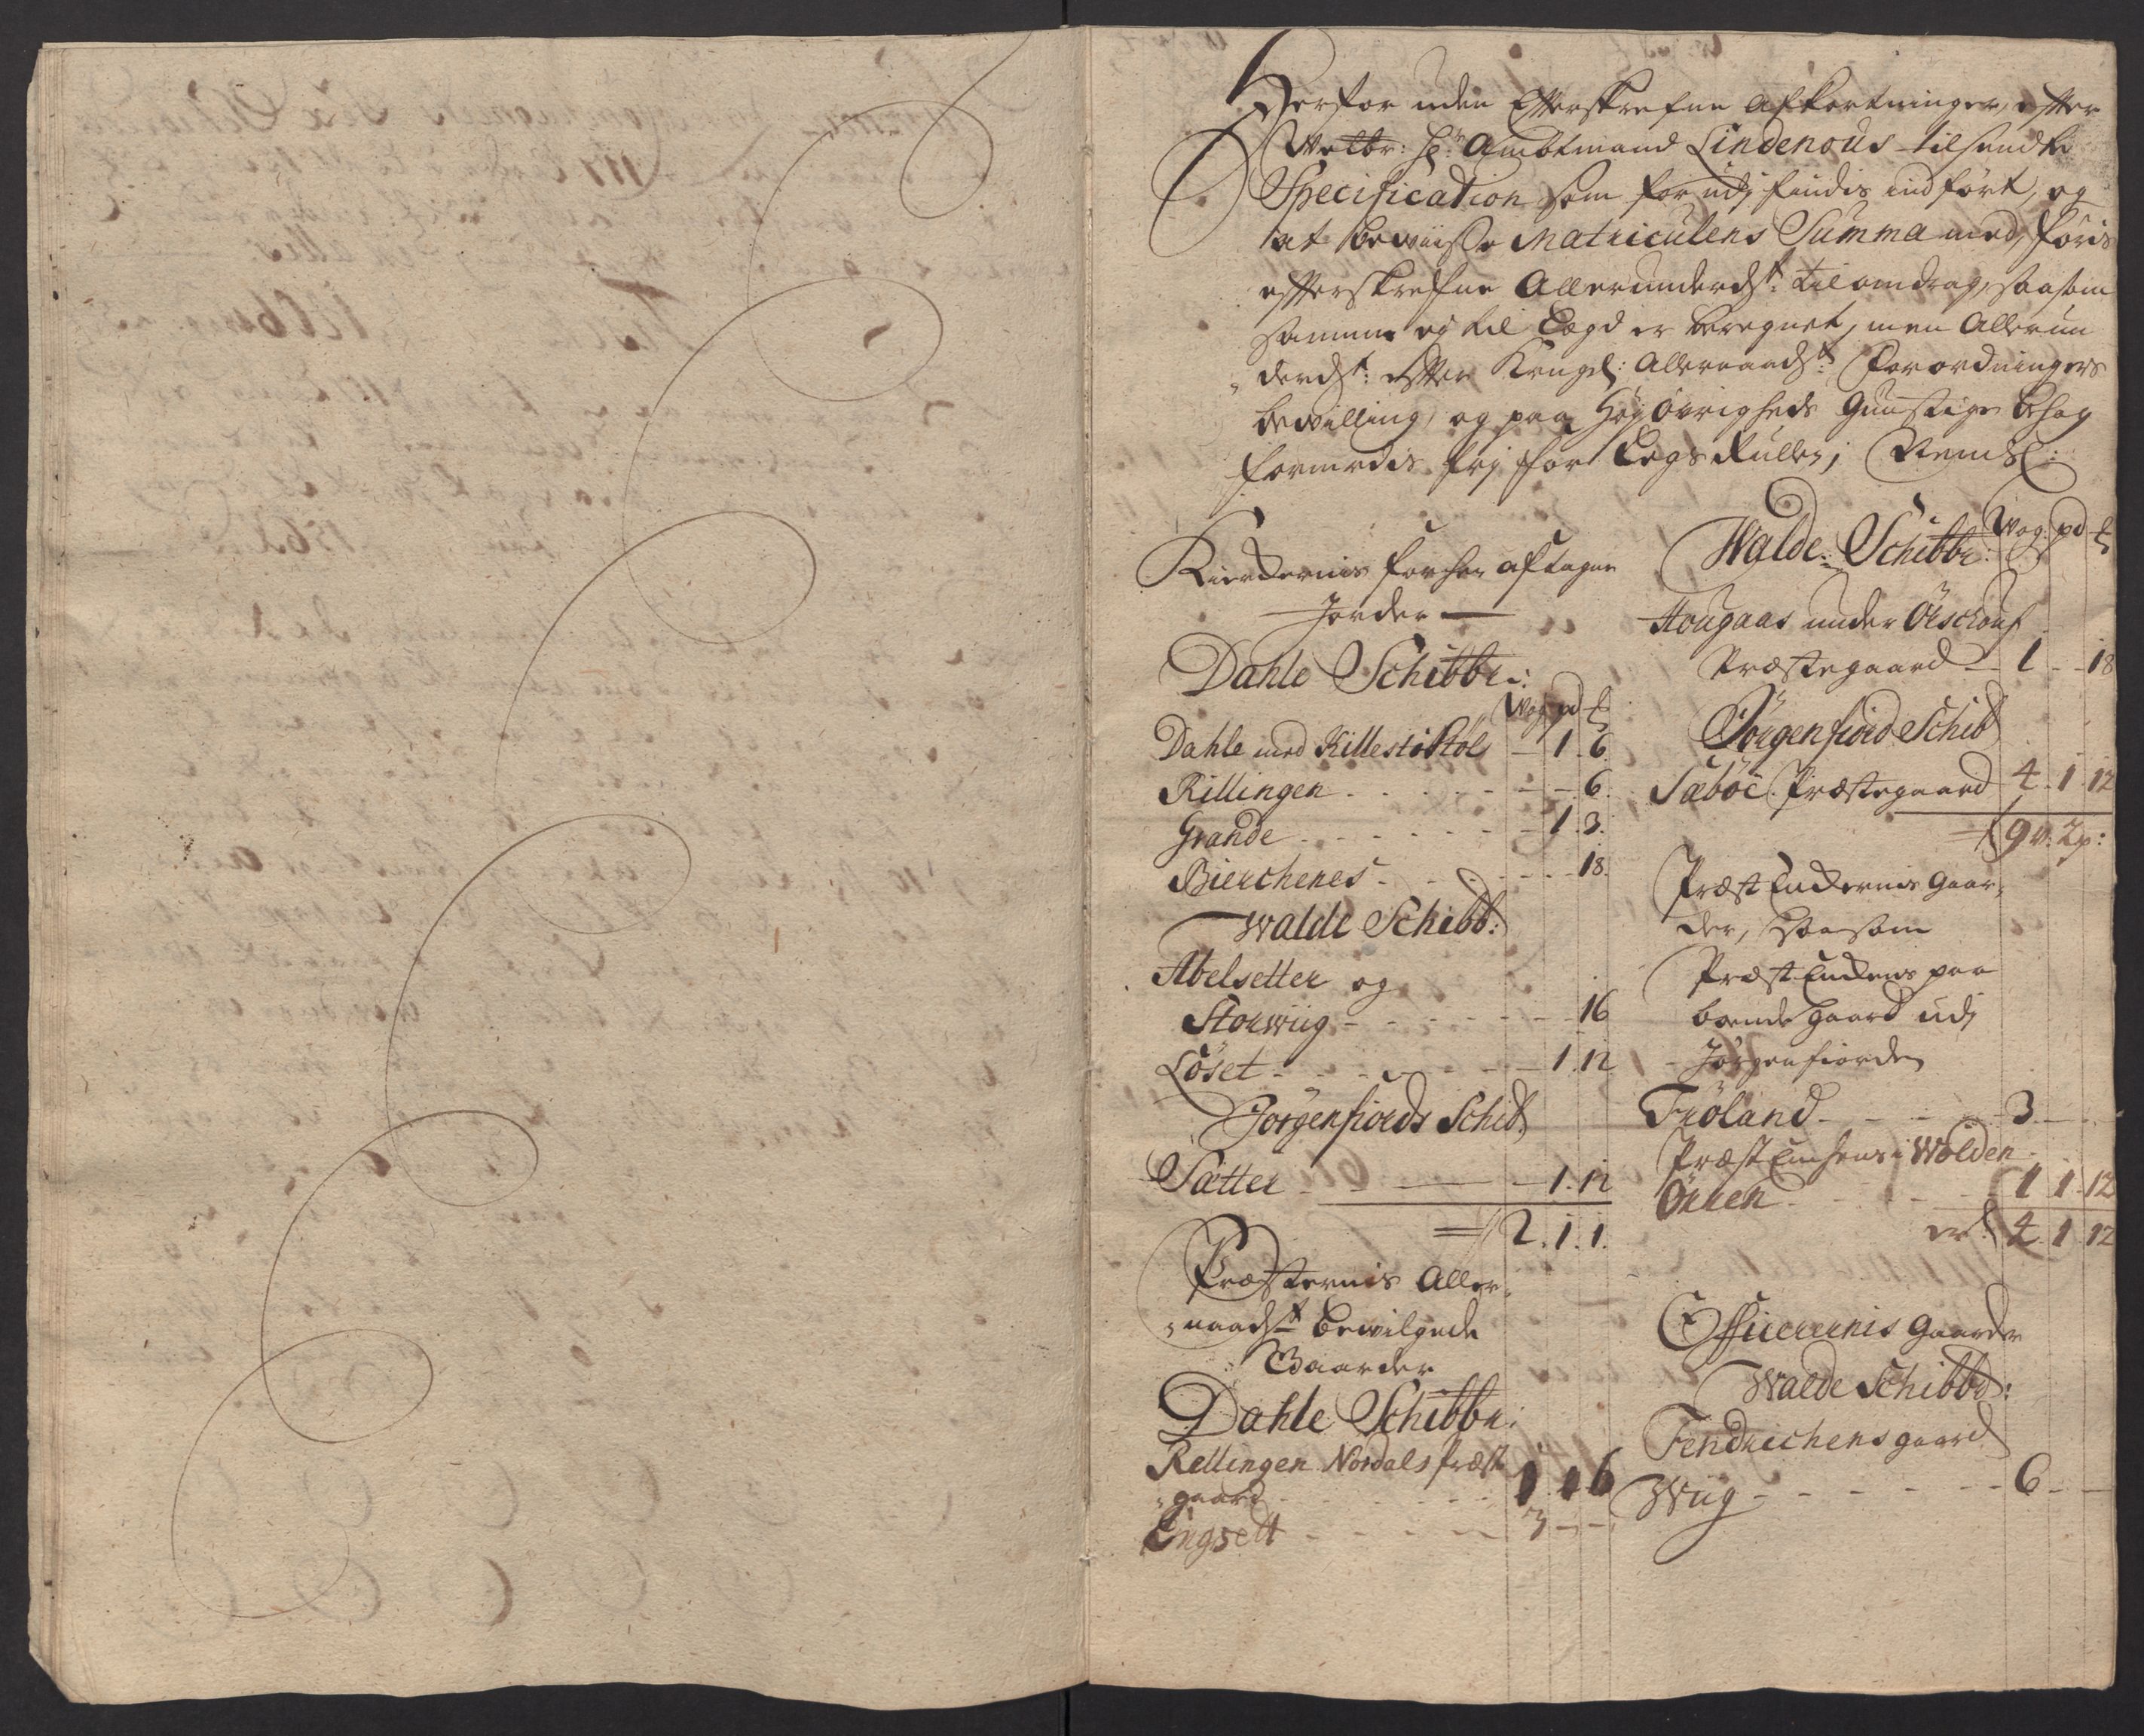 Herfor uden Efterskrefne afkortninger, efter
Welbr: Hr: Ambtmand Lindenous tilsendte
Specification som for udj findis indført, og
at bewiisse Matriculens Summa med, føris
efterskrefne Allerunderdst: til omdrag, saasom
samme ej til Legd er beregnet, men Allerun
derdst: efter Kongel: Allernaadst: Forordningers
bewilling, og paa Høj Øvrigheds Gunstige behag
formodis frj for Legs Rullen; Nembl:
Kierckernis forhen aftagne
Jorder
Dahle Schibbr:
Wog pd ℔
Dahle med Killestistøl 1. 6.
Rillingen 6.
Grande 1. 3.
Bierchenes 18.
Walde Schibb:
Abelsetter og
Storwiig 16
Løset 1. 12
Jørgenfiords Schib
Sætter 1. 12
2. 1. 1.
Præsternis Aller
naadst bewilgede
Gaarder
Dahle Schibbr:
Rellingen Nordals præste
gaard 1. 1. 6
Engsett 3
Walde Schibbr: Wog: pd ℔
Hougaas under Ørschouf
Præstegaard 1 18
Jørgenfiord Schib
Sæbøe Præstegaard 4. 1. 12
9 w: 2 p:
Præst Enckernis Gaar
der, saasom
Præst Enckens paa
boende gaard udj
Jørgenfiorden
Frøland 3
Præst Enckens i Wolden
Ørren 1 1 12
er 4. 1 12
Officerernis Gaarder
Walde Schibbd:
Fendrichens gaard
Wiig 6